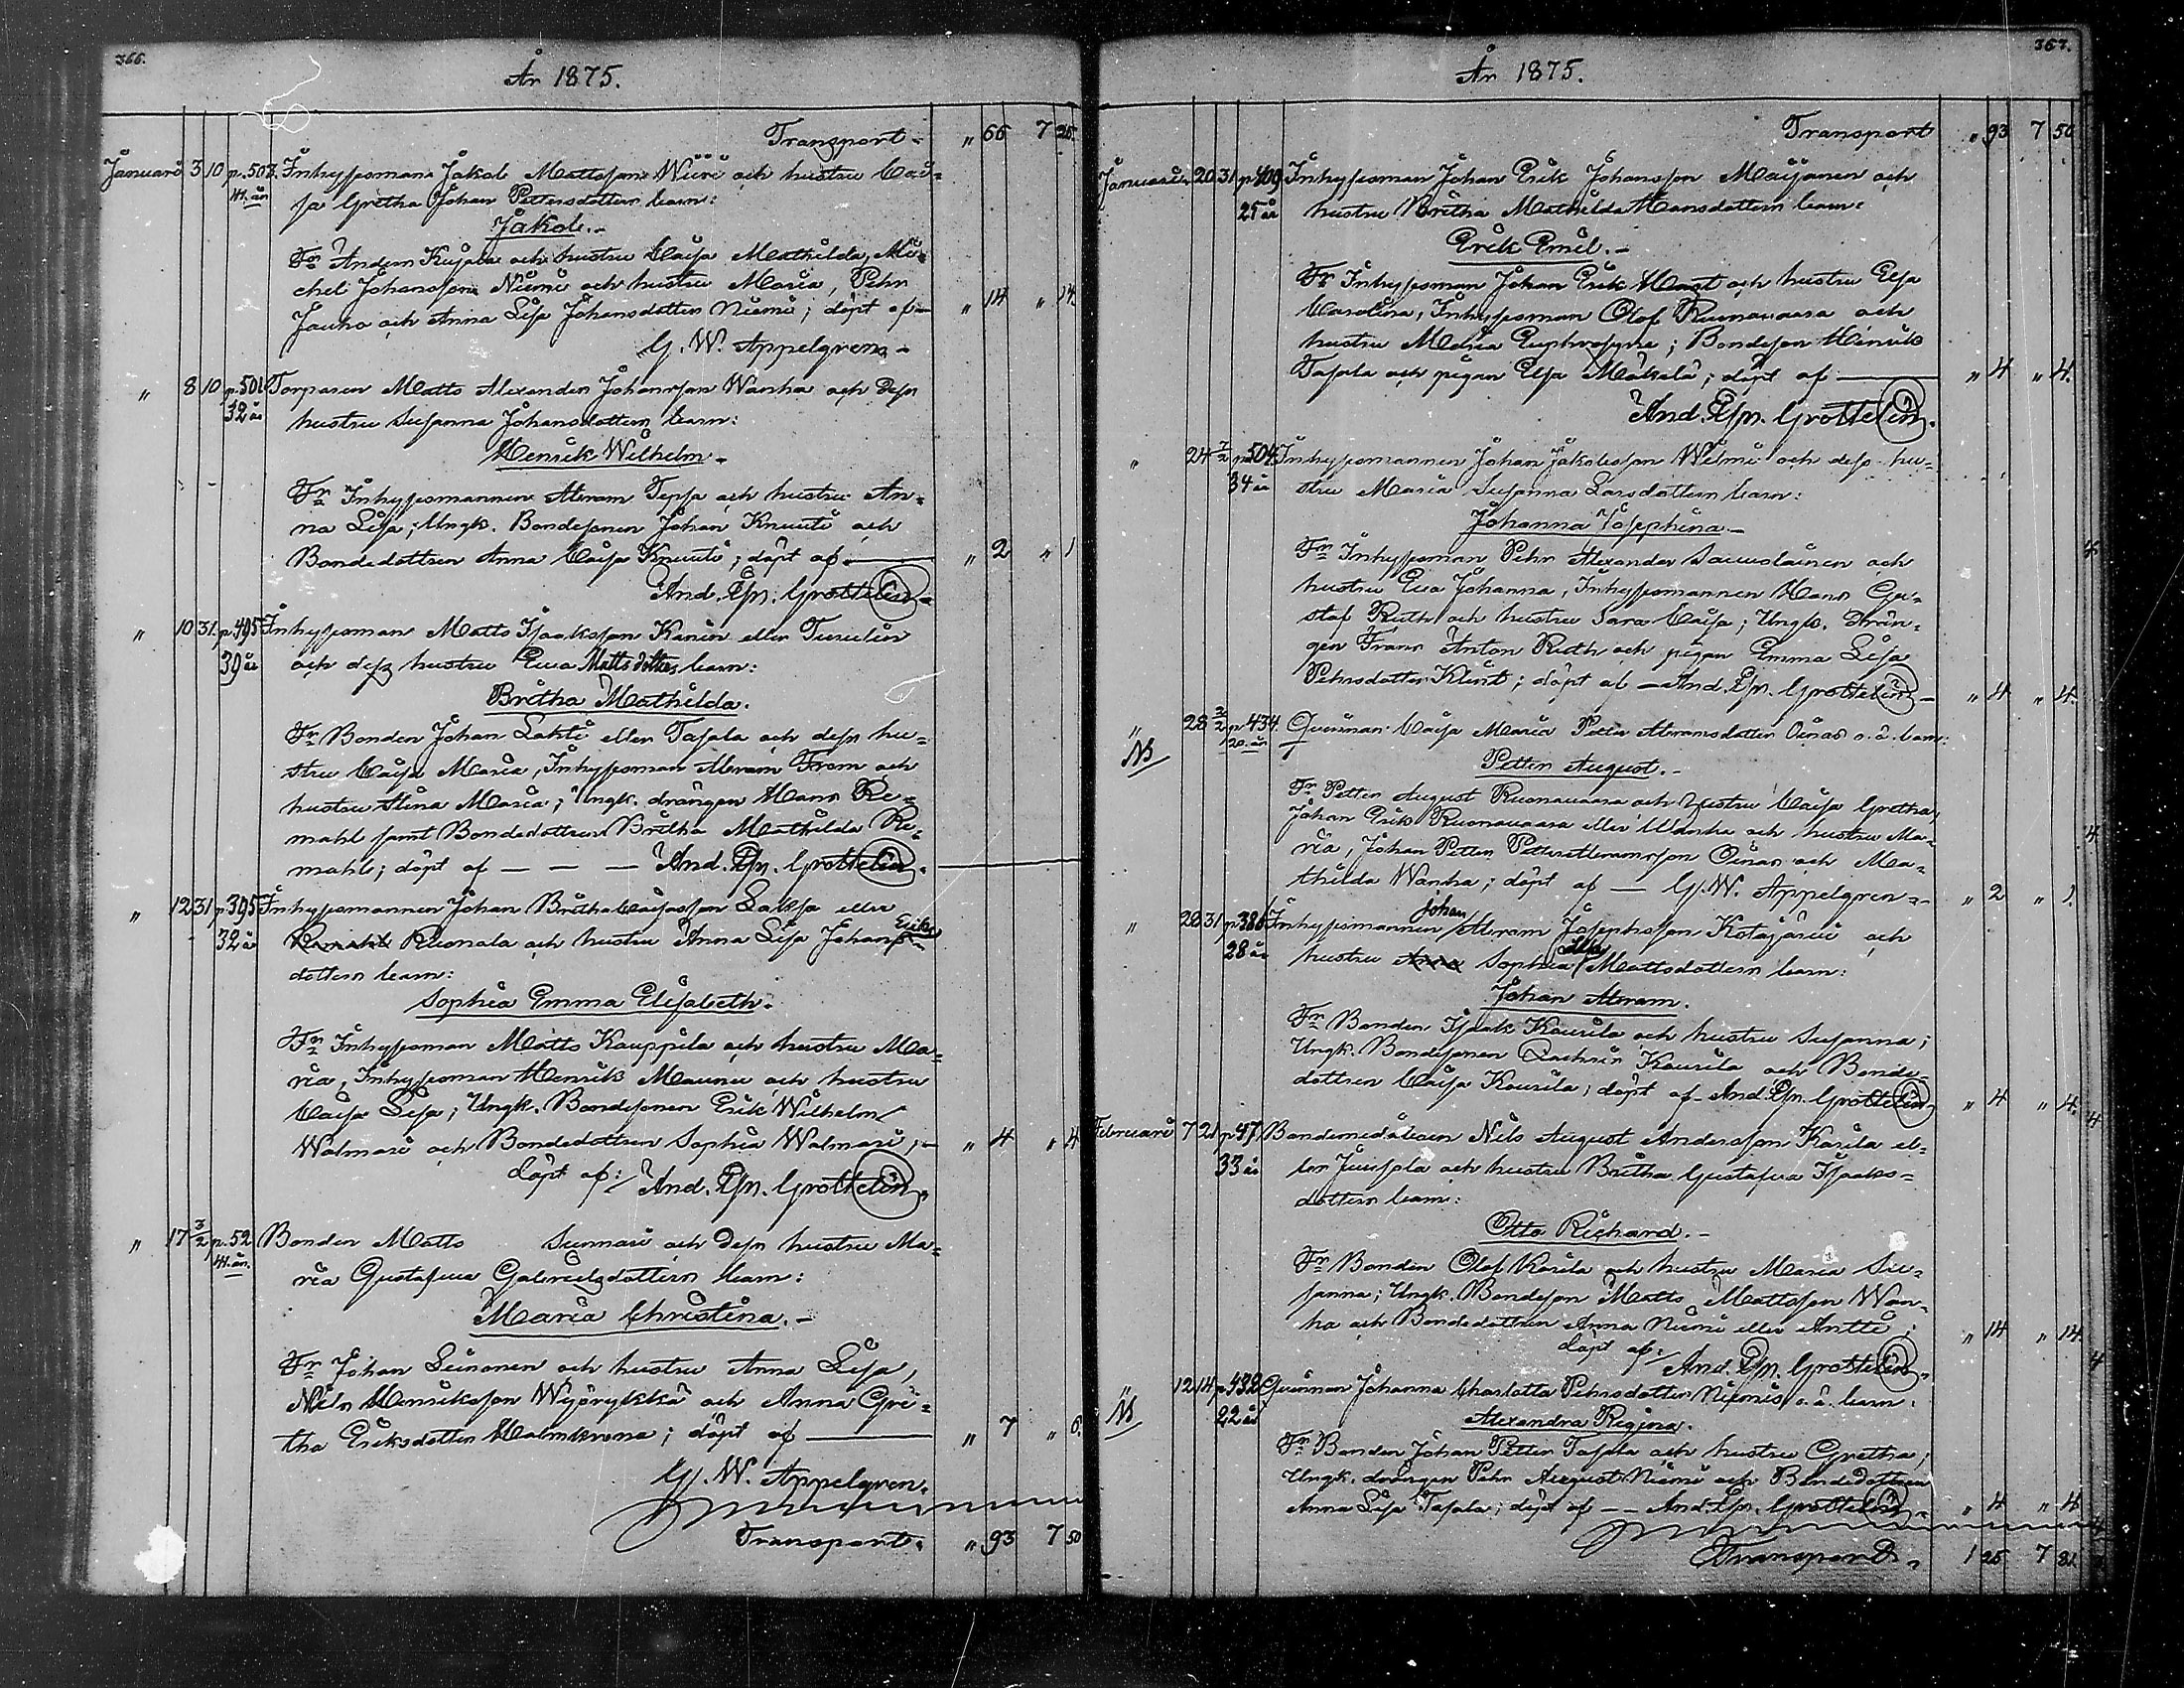 366.
År 1875.
Transport - " 66 7 25
Januari 3 10 p. 503. Inhysoman Jakob Mattsson Wiiri och hustru Cai-
41. år sa Gretha Johan Pettersdotters barn:
Jakob. -
Fr. Anders Kujala och hustru Caisa Mathilda, Mi-
chel Johansson Niemi och hustru Maria, Pehr
Jauho och Anna Lisa Johansdotter Niemi; döpt af — " 14 " 14.
G. W. Appelgren. -
" 8 10 p. 501 Torparen Matts Alexander Johansson Wanha och dess
32 år hustru Susanna Johansdotters barn:
Henrik Wilhelm. -
Fr. Inhysomannen Abram Teppa och hustru An-
na Lisa; Ungk. Bondesonen Johan Knuuti och
Bondedottren Anna Caisa Knuuti; döpt af — " 2 " 1
And. Esn. Grottelin. -
" 10 31. p. 495 Inhysoman Matts Isaksson Kanin eller Turulin
39 år och dess hustru Eva Mattsdotters barn:
Britha Mathilda.
Fr. Bonden Johan Lahti eller Tapala och dess hu-
stru Caisa Maria, Inhysoman Abram From och
hustru Stina Maria; Ungk. drängen Hans Re-
mahl samt Bondedottren Britha Mathilda Re-
mahl; döpt af — — — And. Esn. Grottelin.
" 12 31 p. 395 Inhysomannen Johan Britha Caisasson Saksa eller
32 år Ruonala och hustru Anna Lisa Johan Eriks
dotters barn:
Sophia Emma Elisabeth.
Fr. Inhysoman Matts Kauppila och hustru Ma-
ria, Inhysoman Henrik Maunu och hustru
Caisa Lisa; Ungk. Bondesonen Erik Wilhelm
Walmari och Bondedottren Sophia Walmari; — " 4 " 4
döpt af: And. Esn. Grottelin.
" 17 3/2 p. 52 Bonden Matts Sunnari och dess hustru Ma-
41. år. ria Gustafva Gabrielsdotters barn:
Maria Christina. -
Fr. Johan Leinonen och hustru Anna Lisa,
Nils Henriksson Wyörykkä och Anna Gre-
tha Eriksdotter Malmkrona; döpt af — " 7 " 6.
G. W. Appelgren.
Transport. " 93 7 50
367.
År 1875.
Transport " 93 7 50
Januari 20 31 p. 409 Inhysoman Johan Erik Johansson Maijanen och
25 år hustru Britha Mathilda Hansdotters barn:
Erik Emil. -
Fr. Inhysoman Johan Erik och hustru Elsa
Carolina, Inhysoman Olof Ruonavaara och
hustru Maria Euphrosyne; Bondeson Henrik
Tapala och pigan Elsa Mäkelä; döpt af — " 4 " 4.
And. Esn. Grottelin.
" 24 7/2 p. 504 Inhysomannen Johan Jakobsson Wilmi och dess hu-
34 år stru Maria Susanna Larsdotters barn:
Johanna Josephina. -
Fr. Inhysoman Pehr Alexander Sauvolainen och
hustru Eva Johanna, Inhysomannen Hans Gu-
staf Ruth och hustru Sara Caisa; Ungk. Drän-
gen Frans Anton Ruth och pigan Emma Lisa
Pehrsdotter Klint; döpt af — And. Esn. Grottelin. — " 4 " 4.
" 28 3/2 p. 434. Qvinnan Caisa Maria Petter Abramsdotter Oinas o. ä. barn:
20. år
Petter August. -
Fr. Petter August Ruonavaara och hustru Caisa Gretha,
Johan Erik Ruonavaara eller Wanha och hustru Ma-
ria, Johan Petter Petterabramsson Oinas och Ma-
thilda Wanha; döpt af — G. W. Appelgren. - " 2 " 1.
" 28 31 p. 386 Inhysomannen Johan Abram Josephsson Kotajärvi och
28 år hustru Anna Sophia Mattsdotters barn:
Johan Abram.
Fr. Bonden Isak Kourila och hustru Susanna;
Ungk. Bondesonen Zachris Kourila och Bonde-
dottren Caisa Kourila; döpt af - And. Esn. Grottelin " 4 " 4.
Februari 7 21 p. 47 Bondemedåboen Nils August Andersson Karila el-
33 år ler Juusola och hustru Britha Gustafva Isaks-
dotters barn:
Otto Richard. -
Fr. Bonden Olof Karila och hustru Maria Su-
sanna; Ungk. Bondeson Matts Mattsson Wan-
ha och Bondedottren Anna Niemi eller Antti; " 14 " 14
döpt af: And. Esn. Grottelin.
" 12 14 p. 432 Qvinnan Johanna Charlotta Pehrsdotter Niemis o. ä. barn:
22 år Alexandra Regina.
Fr. Bonden Johan Petter Tapala och hustru Gretha;
Ungk. drängen Pehr August Niemi och Bondedottren
Anna Lisa Tapala; döpt af — And. Esn. Grottelin. " 4 " 4
Transport. 1 25 7 81